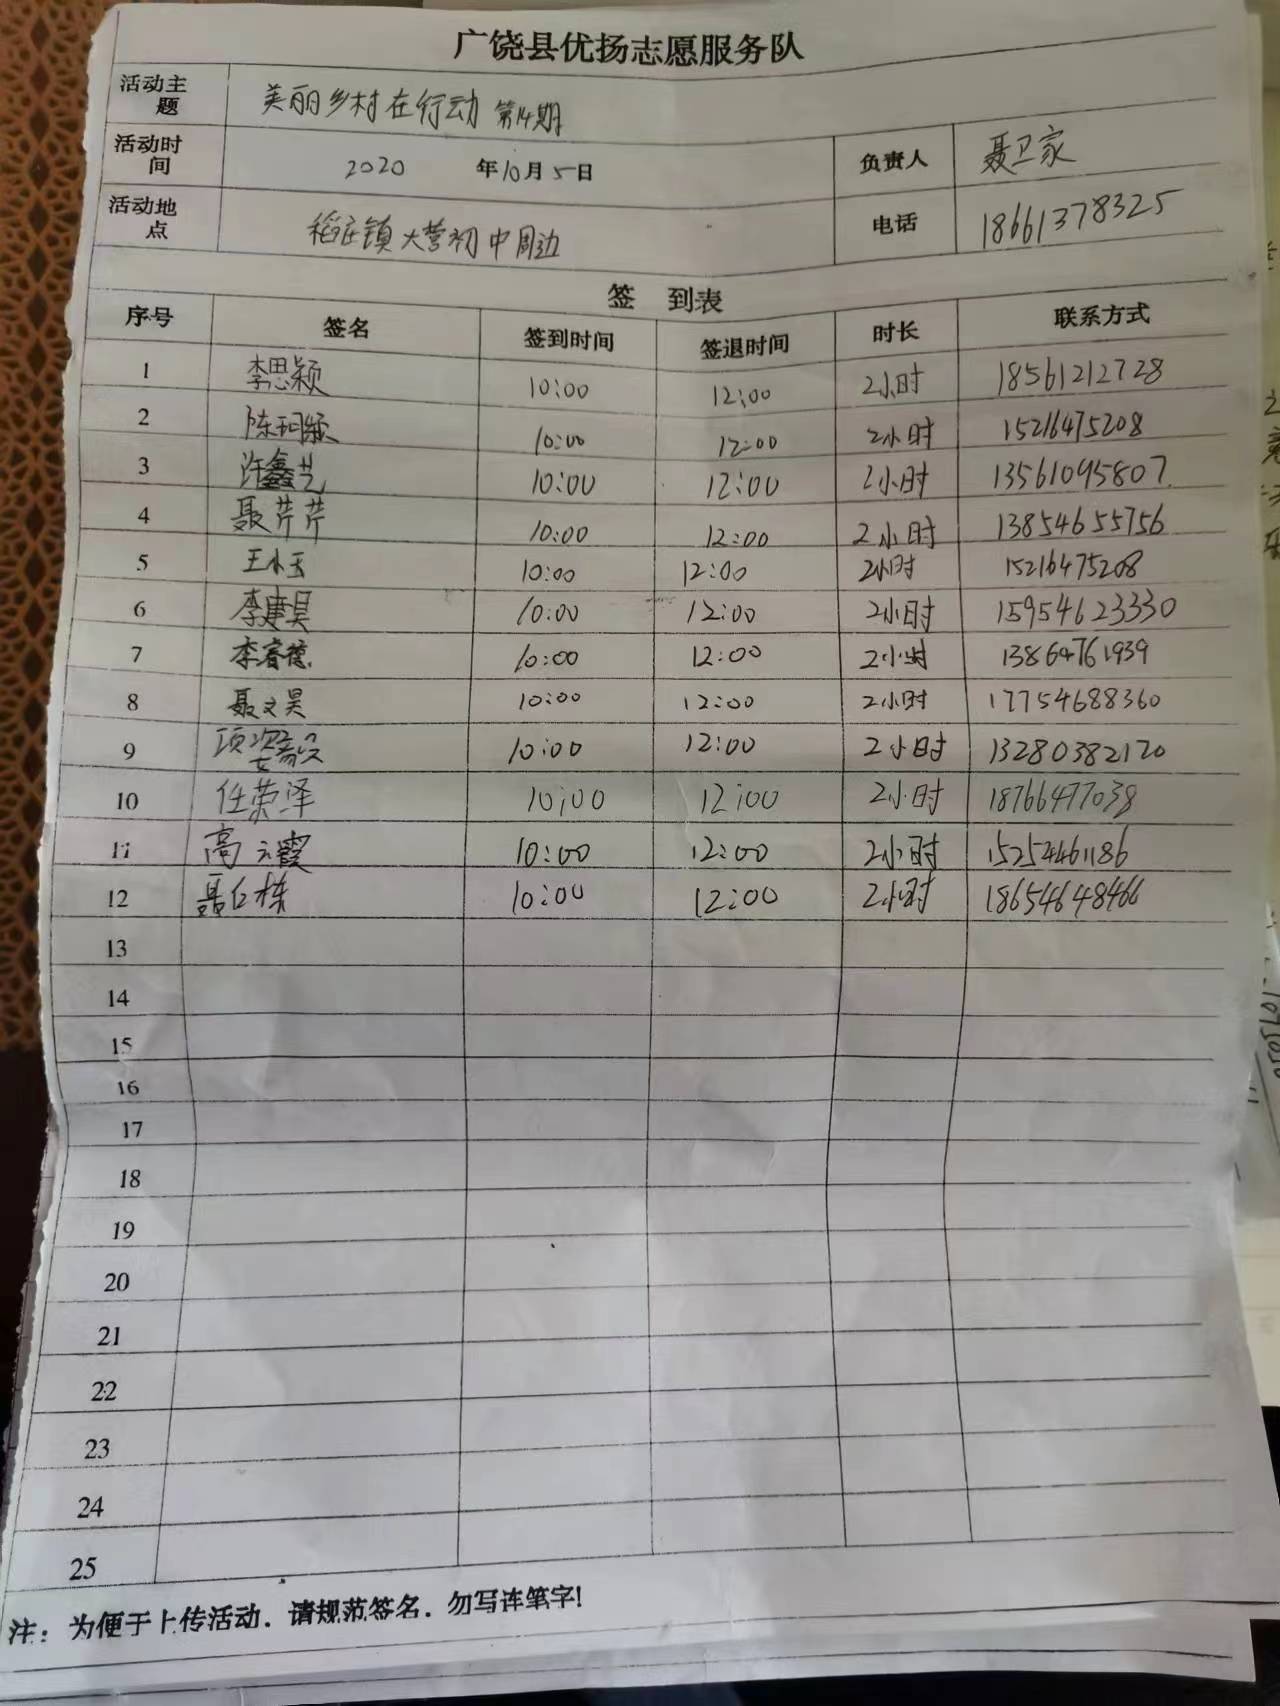 广饶县优扬志愿服务队
活动主题 美丽乡村在行动 第14期
活动时间 2020 年10月5日 负责人 聂卫家
活动地点 稻庄镇大营初中周边 电话 18661378325
签 到表
序号 签名 签到时间 签退时间 时长 联系方式
1 李思颖 10:00 12:00 2小时 18561212728
2 陈珂颖 10:00 12:00 2小时 15216475208
3 许鑫艺 10:00 12:00 2小时 13561095807
4 聂芹芹 10:00 12:00 2小时 13854655756
5 王小玉 10:00 12:00 2小时 15216475208
6 李建昊 10:00 12:00 2小时 15954623330
7 李睿德 10:00 12:00 2小时 13864761939
8 聂文昊 10:00 12:00 2小时 17754688360
9 项姿毅 10:00 12:00 2小时 13280382120
10 任荣泽 10:00 12:00 2小时 18766477038
11 高云霞 10:00 12:00 2小时 15254461186
12 聂仁栋 10:00 12:00 2小时 18654648466
13
14
15
16
17
18
19
20
21
22
23
24
25
注：为便于上传活动．请规范签名．勿写连笔字！